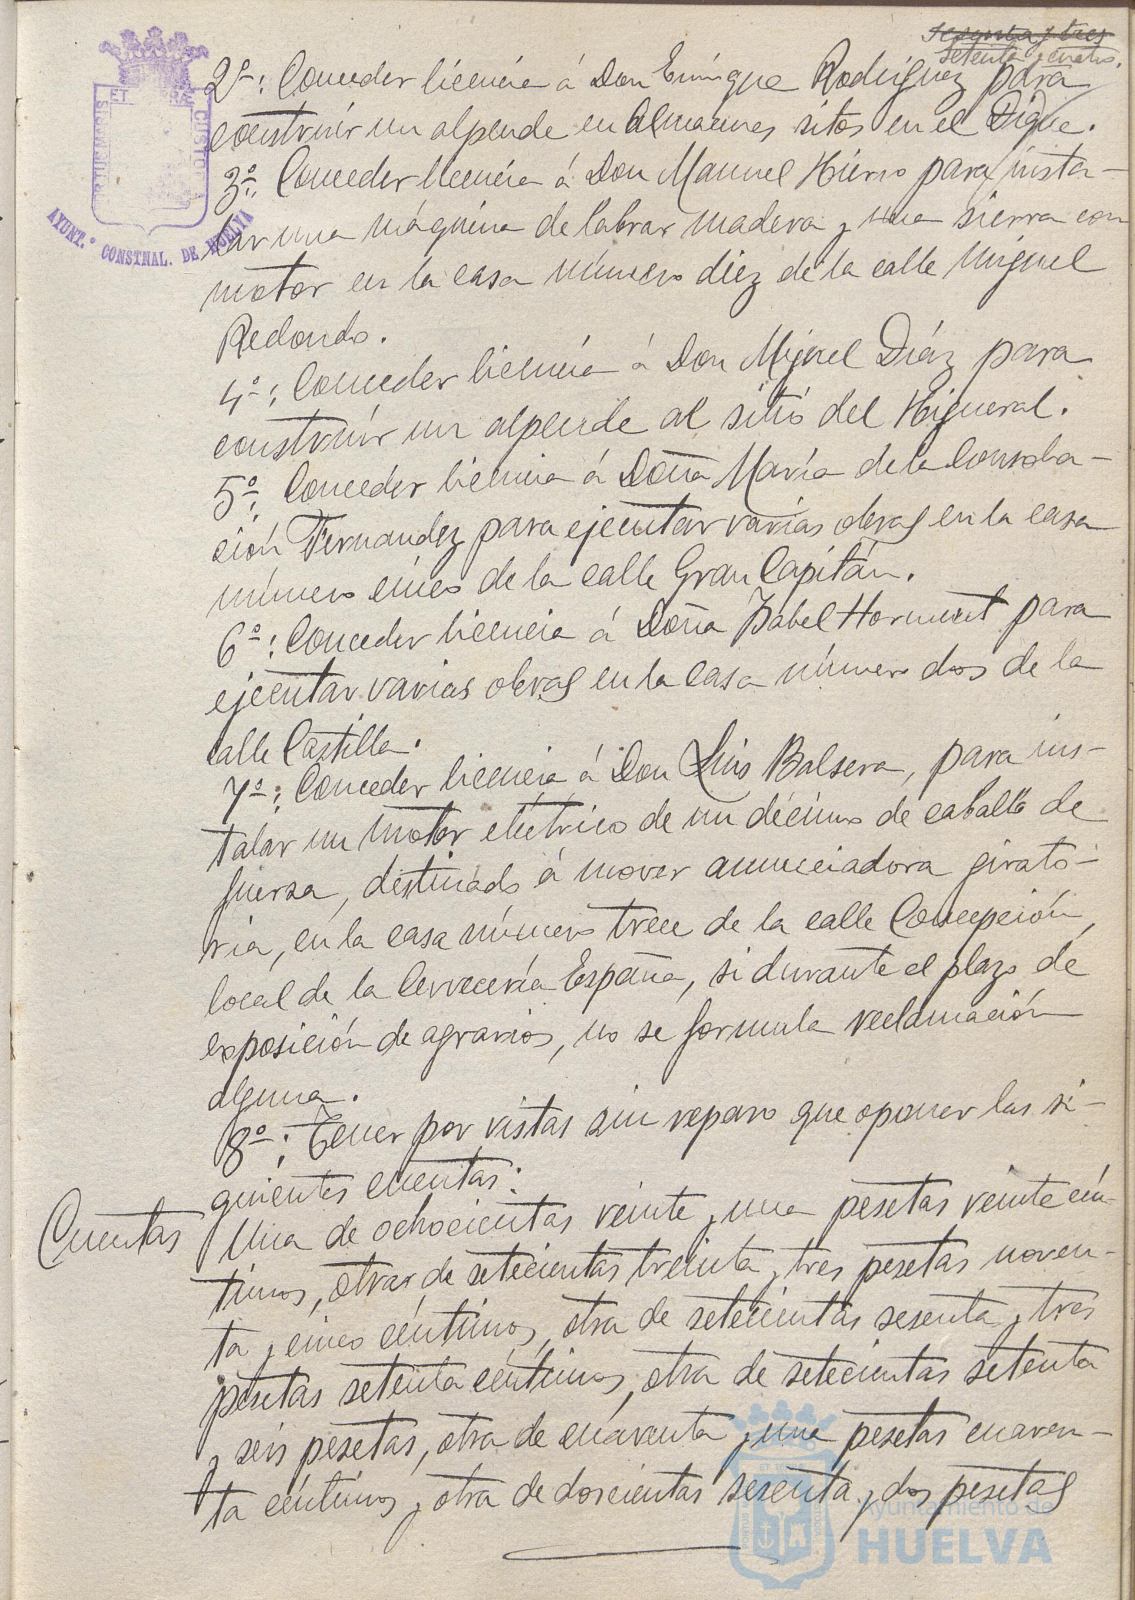 sesenta y tres
setenta y cuatro.
2º: Conceder licencia á Don Enrique Rodríguez para
construír un alpende en almacenes sitos en el Dique.
3º: Conceder licencia á Don Manuel Hierro para insta-
lar una máquina de labrar madera y una sierra con
motor en la casa número diez de la calle Miguel
Redondo.
4º: Conceder licencia á Don Miguel Díaz para
construír un alpende al sitio del Higueral.
5º: Conceder licencia á Doña María de la Consola-
ción Fernandez para ejecutar varias obras en la casa
número cinco de la calle Gran Capitán.
6º: Conceder licencia á Doña Isabel Horment para
ejecutar varias obras en la casa número dos de la
calle Castilla.
7º: Conceder licencia á Don Luis Balsera, para ins-
talar un motor eléctrico de un décimo de caballo de
fuerza, destinado á mover anunciadora girató-
ria, en la casa número trece de la calle Concepción,
local de la Cervecería España, si durante el plazo de
exposición de agravios, no se formula reclamación
alguna.
8º: Tener por vistas sin reparo que oponer las si-
guientes cuentas:
Cuentas
Una de ochocientas veinte y una pesetas veinte cén-
timos, otras de setecientas treinta y tres pesetas noven-
ta y cinco céntimos, otra de setecientas sesenta y tres
pesetas setenta céntimos, otra de setecientas setenta
y seis pesetas, otra de cuarenta y una pesetas cuaren-
ta céntimos y otra de doscientas sesenta y dos pesetas
AYUNT.º CONSTNAL. DE HUELVA
Ayuntamiento de
HUELVA